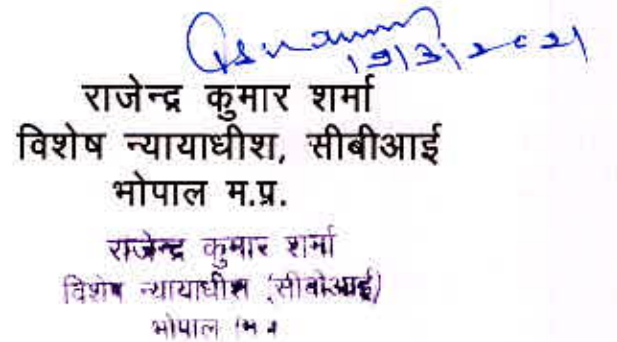 19/3/2021
राजेन्द्र कुमार शर्मा
विशेष न्यायाधीश, सीबीआई
भोपाल म.प्र.
राजेन्द्र कुमार शर्मा
विशेष न्यायाधीश (सीबीआई)
भोपाल